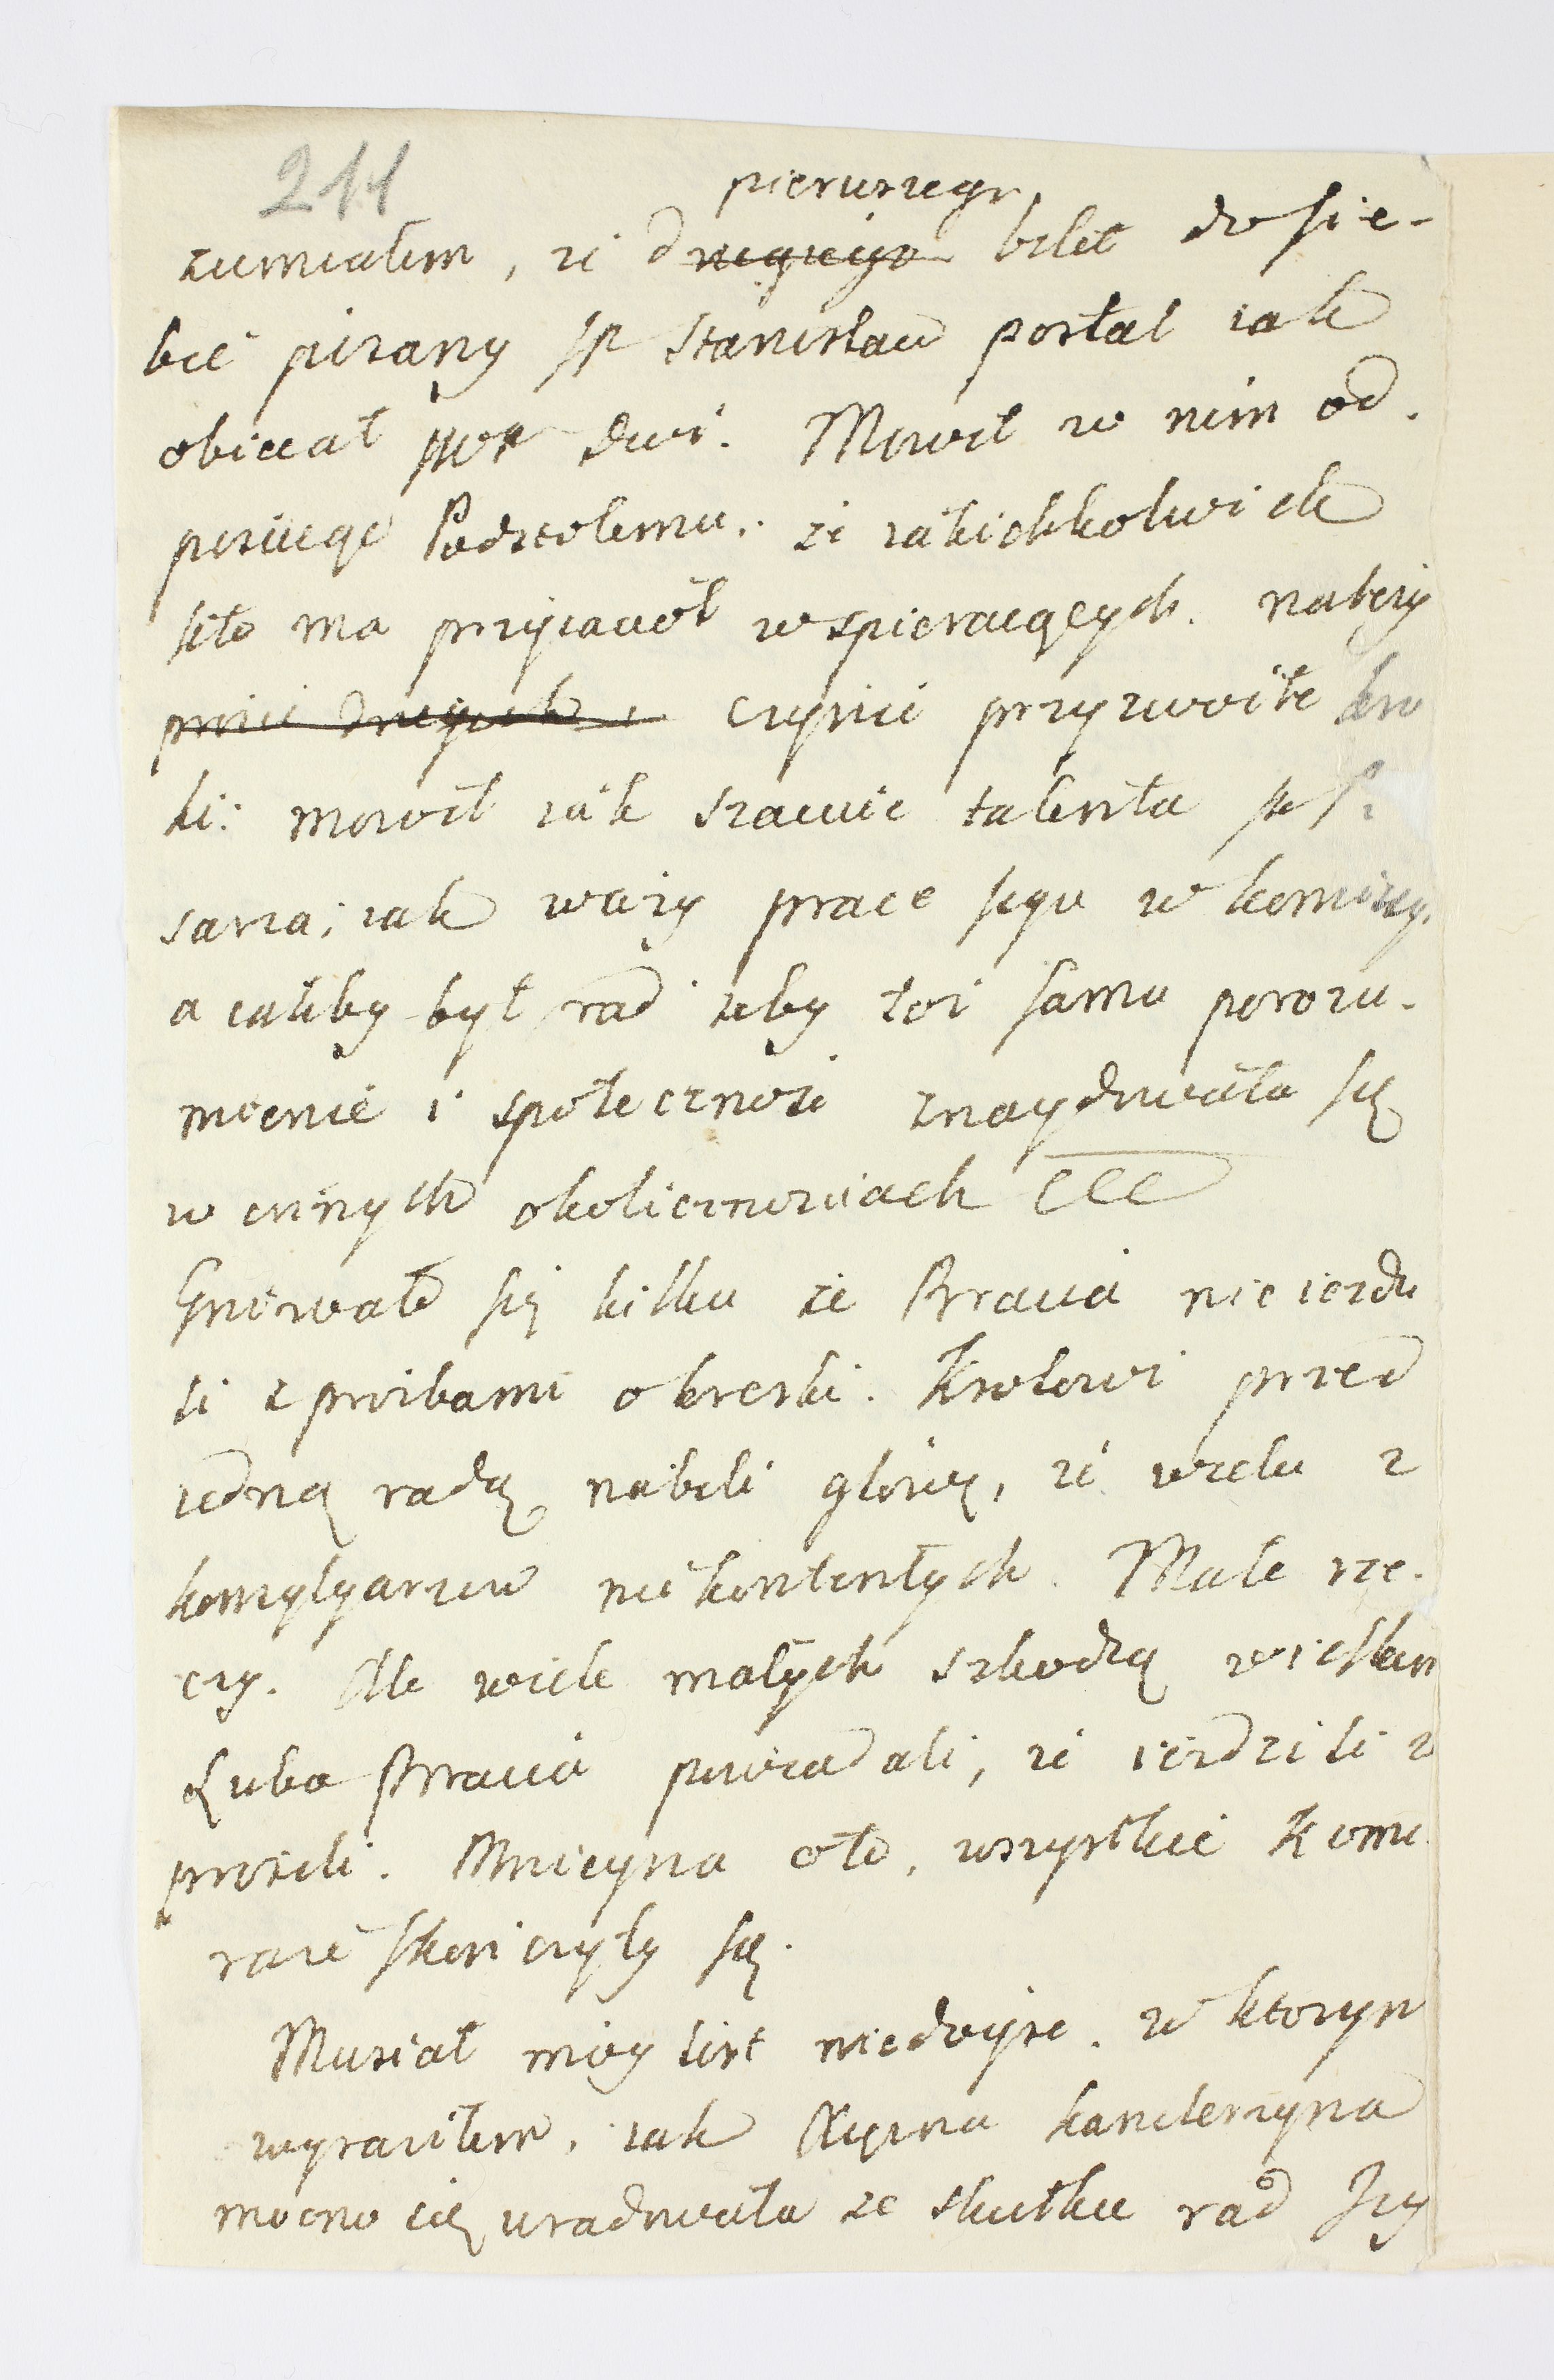 211
pierwszego
zumiałem, że drugiego bilet do sie-
bie pisany JP Stanisław posłał iak
obiecał dwi. Mowił w nim od.
pisuiąc Podstolemu: że iakichkolwiek
kto ma przyiaciół wspieraiących. należy
prosić drugich i czynić przyzwoite kro
ki: mowił iak szacuie talenta
sarza; iak waży prace jego w komissy.
a iakby był rad żeby toż samo porozu-
mienie i społeczność znaydowała się
w innych okolicznościach ccc
Gniewało się kilku że Bracia nie iezdzi
li z prośbami o kreski. Krolowi przed
iedną radą nabili głowę, że wielu z
konsyliarzow nie kontentych. Małe rze-
czy. Ale wiele małych szkodzą wielkim
Luba Bracia powiadali, że iezdzili i
prosili. Mnieysza oto, wszystkie kome
raze skończyły się.
Musiał moy list niedoyść. w ktorym
wyraziłem, iak Xiężna kanclerzyna
mocno się uradowała ze skutku rad Jey